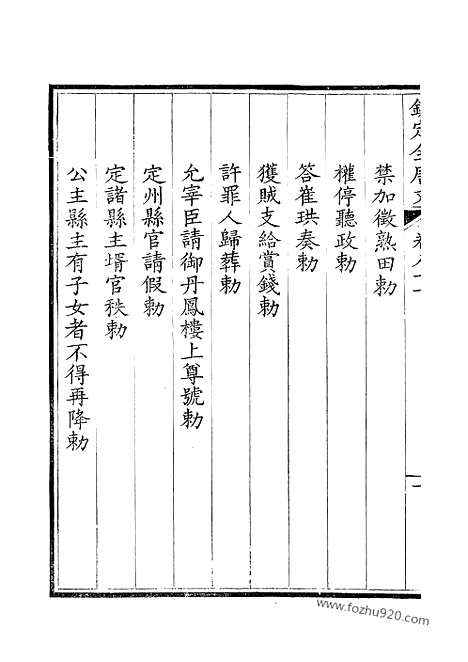 欽定全唐文 卷八十一
禁加徵熟田敕
權停聽政敕
答崔珙奏敕
獲賊支給賞錢敕
許罪人歸葬敕
允宰臣請御丹鳳樓上尊號敕
定州縣官請假敕
定諸縣主壻官秩敕
公主縣主有子女者不得再降敕
www.fozhu920.com